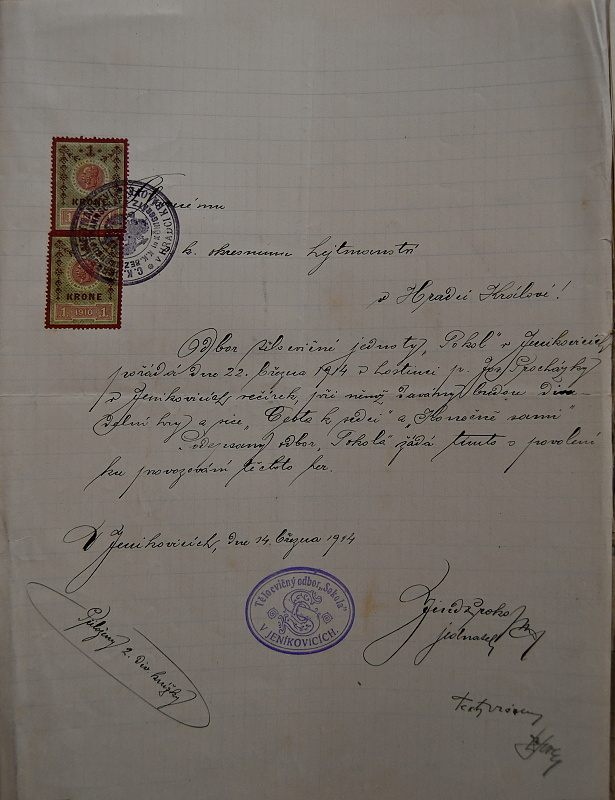 1
KRONE
KRONE
1 1910 1
k. okresnímu hejtmanství
v Hradci Králové!
Odbor tělocvičné jednoty „Sokol" v Jeníkovicích
pořádá dne 22. března 1914 v hostinci p. Jos. Procházky
v Jeníkovicích večírek, při němž dávány budou diva-
delní hry a sice „Cesta k srdci" a „Konečně sami"
Podepsaný odbor „Sokola" žádá tímto o povolení
ku provozování těchto her.
V Jeníkovicích, dne 14. března 1914
Tělocvičný odbor „Sokola"
V JENÍKOVICÍCH.
jednatel
2. div. knížky